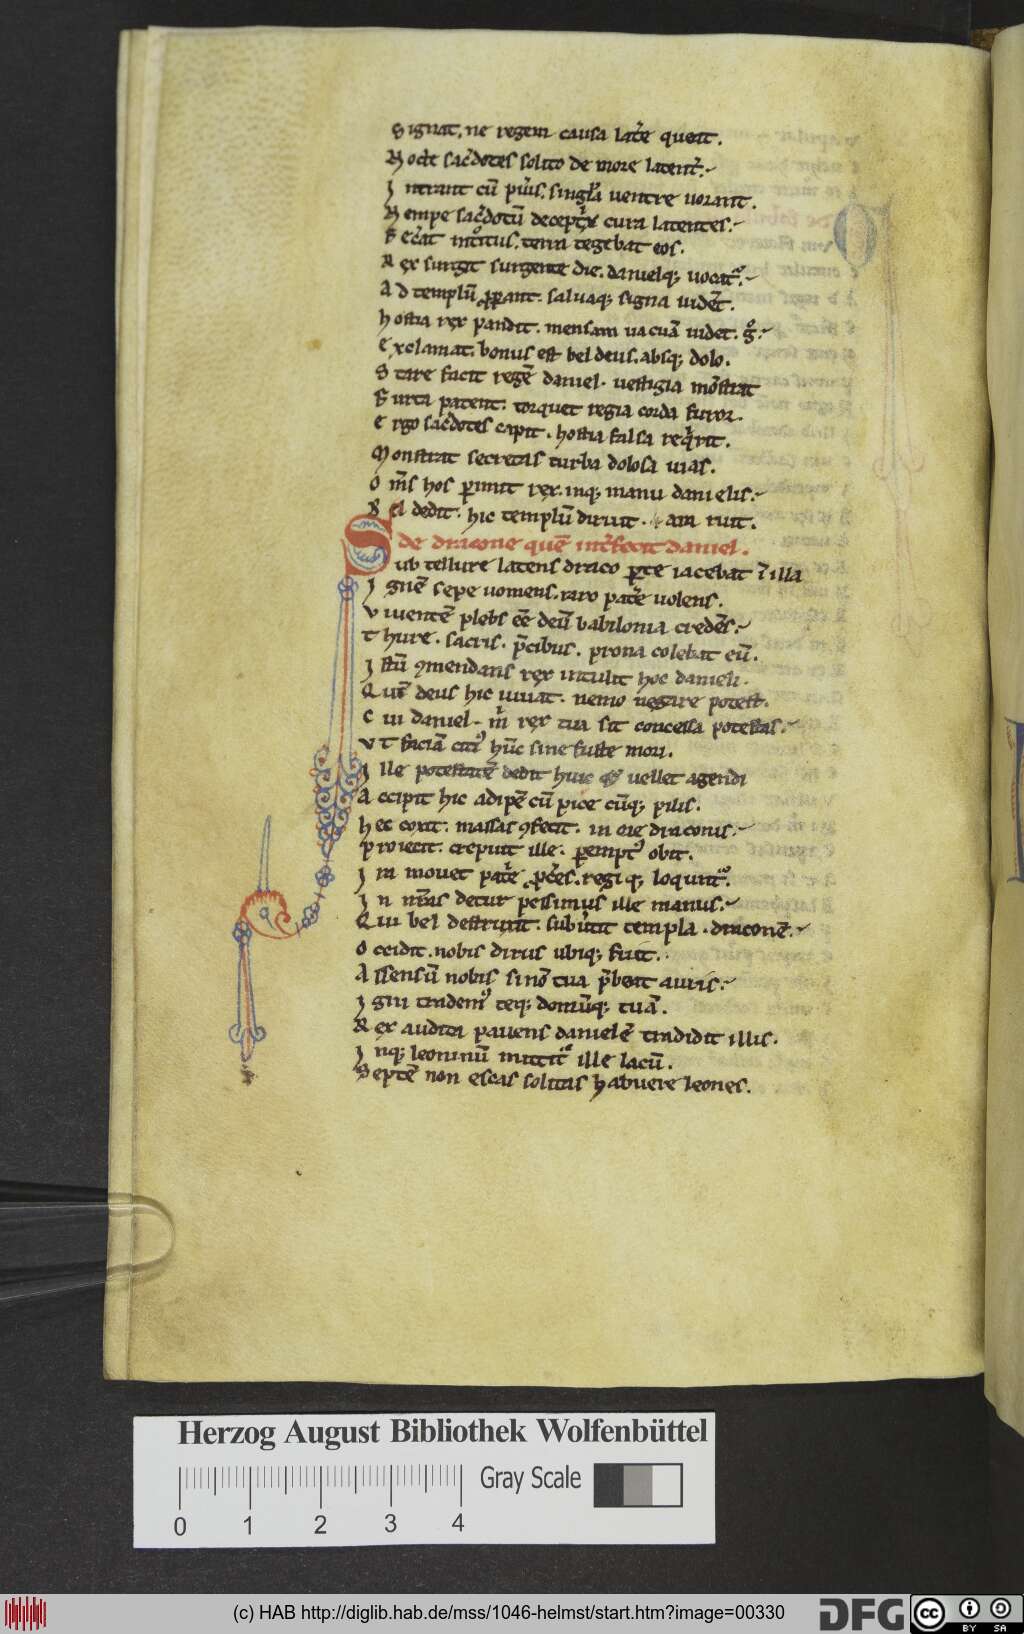 Signat. ne regem causa lat̄e queat.
Nocte sac̄dotes solito de more latent̄.
Intrant cū pu̓is. singl̓a uentre uorant.
Nempe sac̄dotū cura latentes.
Fec̄at int̓oitus. terra tegebat eos.
Rex surgit surgente die. danielq; uocat᷑.
Ad templū ꝓꝑant. saluaq; signa uidēt.
Hostia rex pandit. mensam uacuā uidet. g̊.
Exclamat. bonus est bel deus. absq; dolo.
Stare facit regē daniel. uestigia mōstrat
Furta patent. torquet regia corda furor.
Ergo sac̄dotes capit. hostia falsa req̓rit.
Monstrat secretas turba dolosa uias.
Om̄s hos ꝑimit rex. inq; manu danielis.
Bel dedit. hic templū diruit. ruit.
de dracone quē int̄fecit daniel.
Sub tellure latens draco ꝑte iacebat ī illa
Ignē sepe uomens. raro pat̄e uolens.
Viuentē plebs eē deū babilonia credēs.
Thure. sacris. p̄cibus. prona colebat eū.
Istū ꝯmendans rex intulit hoc danieli.
deus hic uiuat. nemo negare potest.
Cui daniel. m̓ rex tua sit concessa potestas.
Vt faciā citi᷒ hūc sine fuste mori.
Ille potestatē dedit huic uellet agendi
Accipit hic adipē cū pice cūq; pilis.
Hec coxit. massas ꝯfecit. in ore draconis.
Proiecit. crepuit ille. ꝑempt᷒ obit.
Ira mouet pat̄e ꝓc̄es. regi q; loqunt᷑.
In nr̄as detur pessimus ille manus.
Qui bel destruxit. subu̓tit templa. draconē.
Occidit. nobis dirus ubiq; fuit.
Assensū nobis si nō tua p̄beat auris.
Igni tradem᷒ teq; domūq; tuā.
Rex audita pauens danielē tradidit illis.
Inq; leoninū mittit᷑ ille lacū.
Septē non escas solitas habuere leones.
Herzog August Bibliothek Wolfenbüttel
Gray Scale
0 1 2 3 4
(c) HAB http://diglib.hab.de/mss/1046-helmst/start.htm?image=00330
DFG
cc BY SA